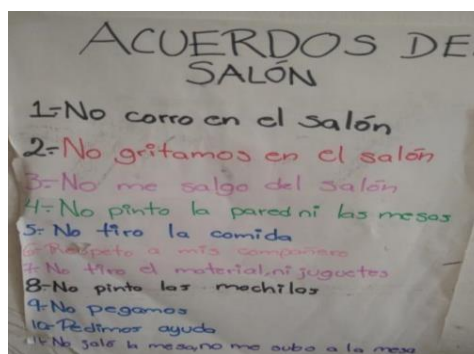 ACUERDOS DE
SALÓN
1-No corro en el salón
2-No gritamos en el salón
3-No me salgo del salón
4-No pinto la pared ni las mesas
5-No tiro la comida
6-Respeto a mis compañero
7-No tiro el material, ni juguetes
8-No pinto las mochilas
9-No pegamos
10-Pedimos ayuda
11-No jalo la mesa, no me subo a la mesa